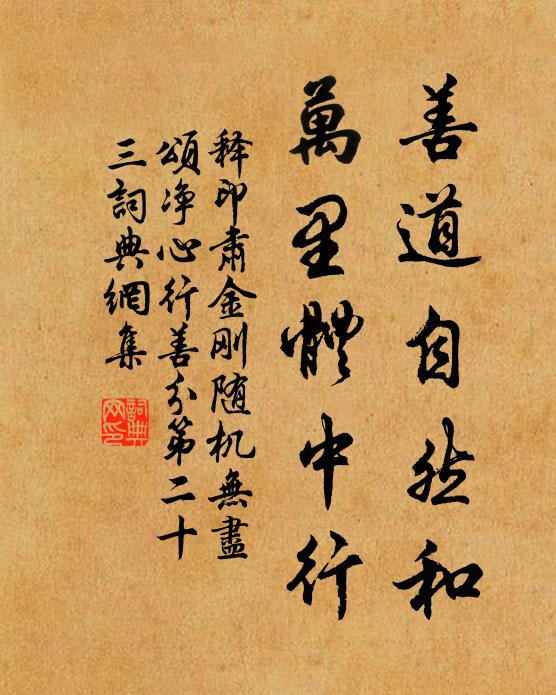 善道自然和
萬里體中行
释印肃金刚随机無盡
頌净心行善分第二十
三詞典網集
詞典
网印